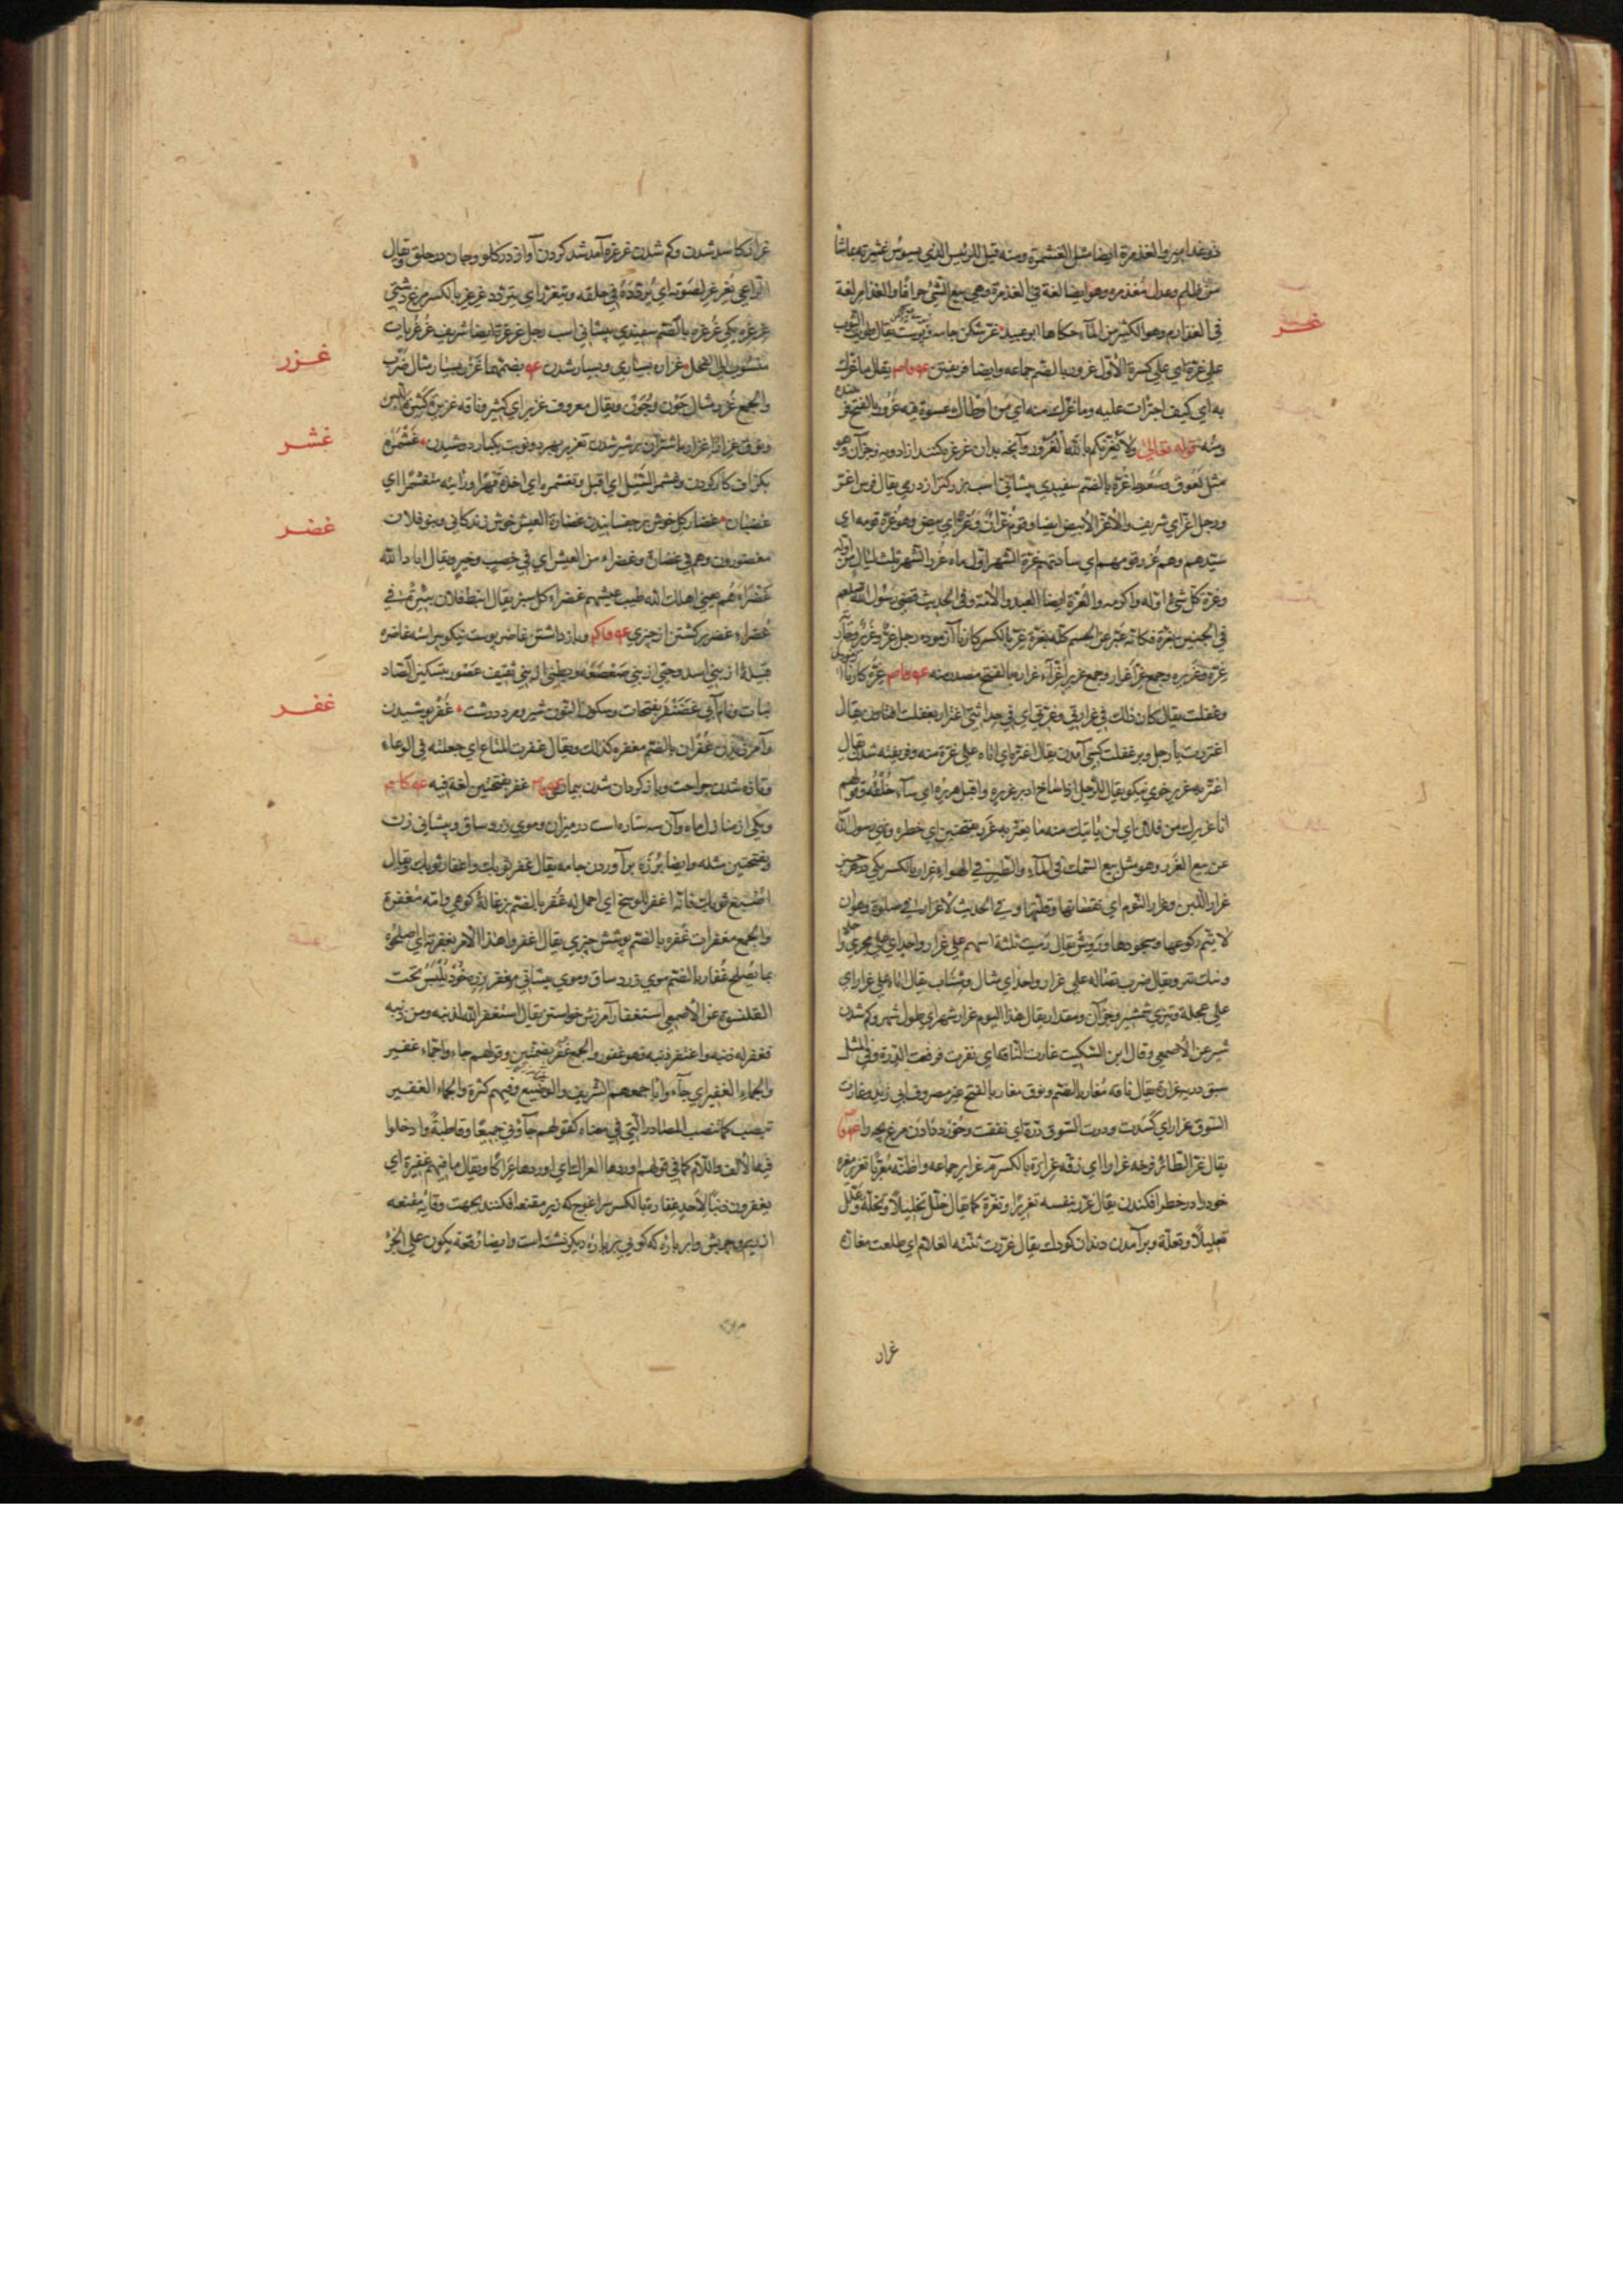 ذو غذامير والغذمرة ايضا مثل الغشمرة ومنه قيل للرئيس الذي يسوس عشيرته بما شاء
من ظلم وعدل مغذمر وهو ايضا لغة في الغذمرة وهي بيع الشئ جزافا والغذامر لغة
في الغذارم وهو الكثير من الماء حكاها ابو عبيد غر شكن جامه و پوست يقال طويت الثوب
غر
علي غره اي علي كسره الاول غرور بالضم جماعه وايضا فريفتن يقال ما غرك
به اي كيف اجترات عليه وما غرك منه اي من اوطاك عشوة فيه غرور بالفتح
ومنه قوله تعالى ولا يغرنكم بالله الغرور وآنچه بدان غرغره كنند از ادويه وجز آن وهو
مثل لعوق وسعوط غره بالضم سفيدي پيشاني اسب بزركتر از درم يقال فرس اغر
ورجل اغر اي شريف والاغر الابيض ايضا وقوم غران وغر اي بيض وهو غرة قومه اي
سيدهم وهم غرر قومهم اي ساداتهم غرة الشهر اول ماه غرر الشهر ثلث ليال من اوله
وغرة كل شئ اوله واكرمه والغرة ايضا العبد والامة وفي الحديث قضى رسول الله صلعم
في الجنين بغرة فكانه عبر عن الجسم كله بغرة غر بالكسر كار نا آزموده رجل غر وغرير وجارية
غرة وغريرة وجمع غر اغرار وجمع غرير اغراء غرارة بالفتح مصدر منه غره كار نا
وغفلت يقال كان ذلك في غرارتي وغرتي اي في حداثتي اغترار بغفلت افتادن يقال
اغتررت يا رجل و بر غفلت كسي آمدن يقال اغتره اي اتاه علي غرة منه وفريفته شدن يقال
اغتر به غرير خوي نيكو يقال للرجل اذا شاخ ادبر غريره واقبل هريره اي ساء خلقه وقولهم
انا غريرك من فلان اي لن ياتيك منه ما يغتر به غرر بفتحتين اي خطره ونهي رسول الله
عن بيع الغرر وهو مثل بيع السمك في الماء والطير في الهواء غرار بالكسر
غرار اللبن وغرار النوم اي نقصانها وقلتها وفي الحديث لا غرار في صلوة وهو ان
لا يتم ركوعها وسجودها وروش يقال رميت ثلثة اسهم علي غرار واحد اي علي مجري واحد
ويقال ضرب نصاله علي غرار واحد اي مثال وشتاب يقال اتاه علي غرار اي
علي عجلة وتيزي شمشير وجز آن ومقدار يقال هذا اليوم غرار شهر اي طول شهر وكم شدن
شير عن الاصمعي وقال ابن السكيت غارت الناقة اي نفرت فرفعت الدرة وفي المثل
سبق درته غراره يقال ناقه مغار بالضم ونوق مغار بالفتح غير مصروف ابي زيد وغارت
السوق غرارا اي كسدت ودرت السوق درة اي نفقت وخورد دادن مرغ بچه را
يقال غر الطائر فرخه غرارا اي زقه غرارة بالكسر غراير جماعه واظنه معربا تغرير تغره
خود را در خطر افكندن يقال غرر بنفسه تغريرا وتغرة كما يقال حلل تحليلا وتحلة وعلل
تعليلا وتعلة و بر آمدن دندان كودك يقال غررت ثنية الغلام اي طلعت مغاره
غرار
غرار كاسد شدن وكم شدن غرغره آمد شد كردن آواز در كلو وجان در حلق يقال
الراعي يغرغر بصوته اي يردده في حلقه ويتغرغر اي يتردد غرغر بالكسر مرغ دشتي
غرغره يكي غرغره بالضم سفيدي پيشاني اسب رجل غرغرة ايضا شريف غرغريات
منسوب الي الفحل غزارة بسياري و بسيار شدن بضمهما غزر بسيار مثال ضرب
غزر
والجمع غزر مثال جون وجون ويقال معروف غزير اي كثير وناقه غزيرة كثيرة اللبن
ونوق غزار اغزار با شتران پر شير شدن تغزير بهر دو نوبت يكبار دوشيدن غشمره
غشر
بكزاف كار كردن وتغشمر السيل اي اقبل وتغشمره اي اخذه قهرا ورايته متغشمرا اي
غضبان غضار كل خوش بر چفسانيدن غضارة العيش خوش زندكاني وبنو فلان
غضر
مغضورون وهم في غضارة وغضراء من العيش اي في خصب وخير ويقال اباد الله
غضراءهم يعني اهلك الله طيب عيشهم غضراء كل سبز يقال انبط فلان بئره في
غضراء غضر بر كشتن از چيزي و باز داشتن غاضر پوست نيكو پيراسته غاضره
قبيلة از بني اسد وحيي از بني صعصعة و بطني از بني ثقيف غضور بتسكين الضاد
نبات ونام آبي غضنفر بفتحات وسكون النون شير ومرد درشت غفر پوشيدن
غفر
وآمرزيدن غفران بالضم مغفره كذلك ويقال غفرت المتاع اي جعلته في الوعاء
وتازه شدن جراحت و باز كردان شدن بيماري غفر بفتحتين لغة فيه
ويكي از منازل ماه وآن سه ستاره است در ميزان وموي زرد ساق و پيشاني زن
وبفتحتين مثله وايضا پرزه بر آوردن جامه يقال غفر ثوبك واغفار ثوبك يقال
اصبغ ثوبك فانه اغفر للوسخ اي احمل له غفر بالضم بزغاله كوهي وامه مغفرة
والجمع مغفرات غفره بالضم پوشش چيزي يقال اغفروا هذا الامر بغفرته اي اصلحوه
بما يصلح غفار بالضم موي زرد ساق وموي پيشاني مغفر زره خود يلبس تحت
القلنسوة عن الاصمعي استغفار آمرزش خواستن يقال استغفر الله لذنبه ومن ذنبه
فغفر له ذنبه واغتفر ذنبه فهو غفور والجمع غفر بضمتين وقولهم جاءوا جماء غفير
والجماء الغفير اي جاءوا باجمعهم الشريف والوضيع وفيهم كثرة والجماء الغفير
تنصب كما تنصب المصادر التي في معناه كقولهم جاؤني جميعا وقاطبة وادخلوا
فيها الالف واللام كما في قولهم اوردها العراك اي اوردها عراكا ويقال ما فيهم غفيرة اي
يغفرون ذنبا لاحد غفارة بالكسر سراغوج كه زير مقنعه افكنند بجهت وقاية مقنعه
وابر پاره كه كوئي زبر پاره ديكر نشسته است وايضا رقعة يكون علي الحز